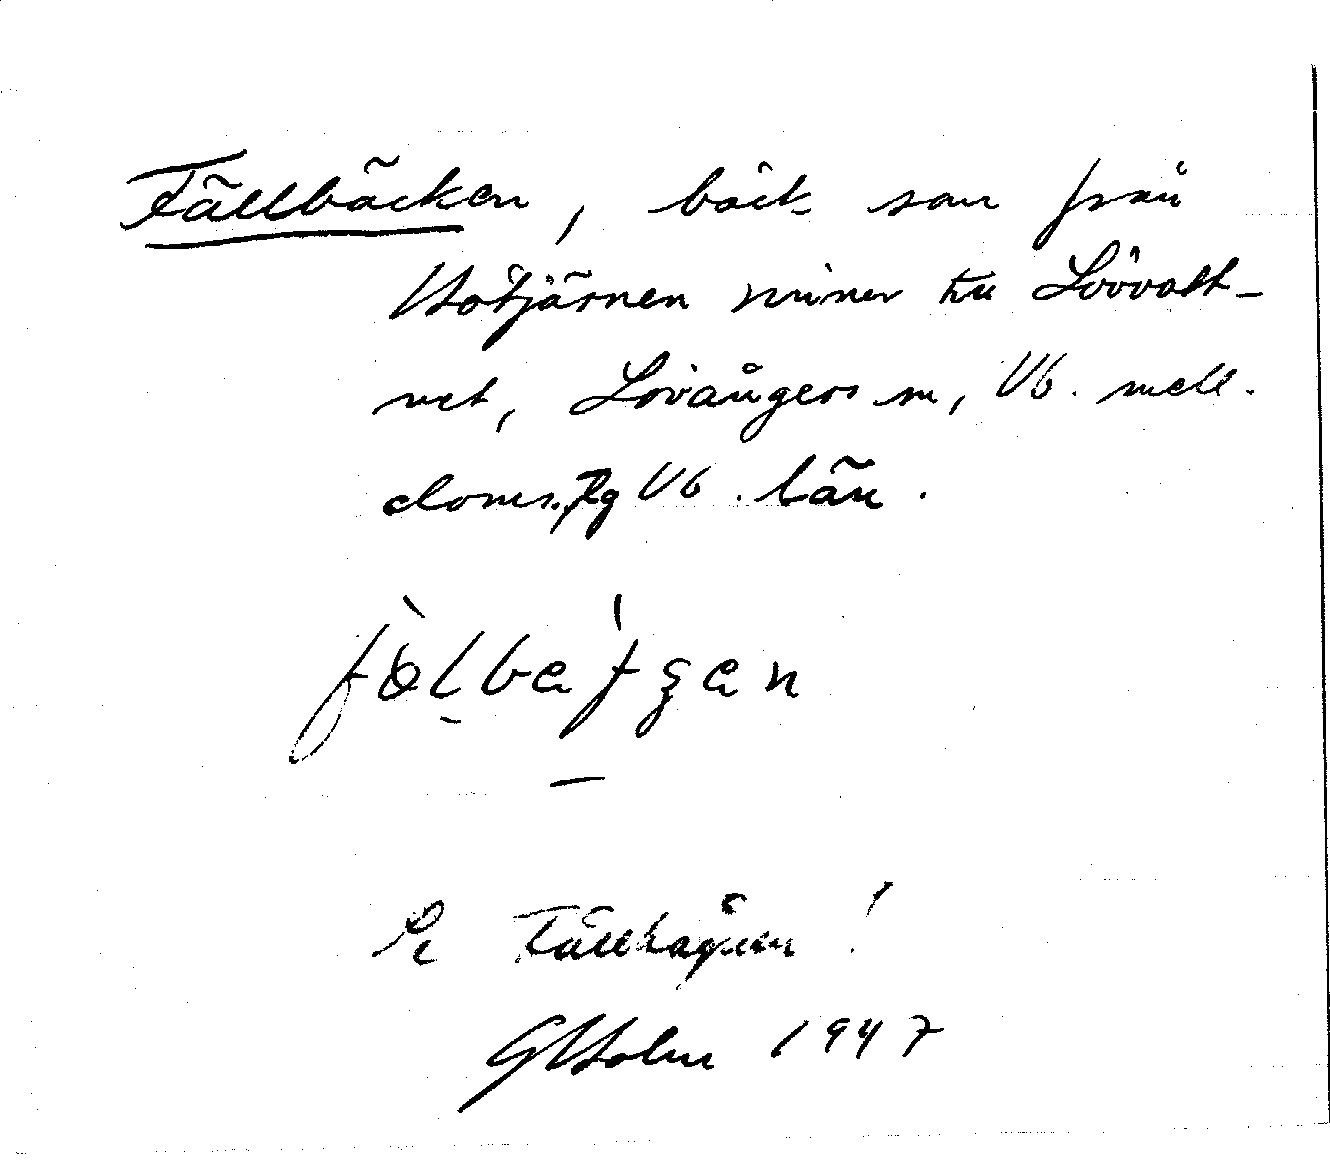 Fällbäcken, bäck som från
Hötjärnen rinner till Lövvatt-
net, Lövångers sn, Vb. mell.
doms. Vb. län.
Se Fällhågen!
GHolm 1947